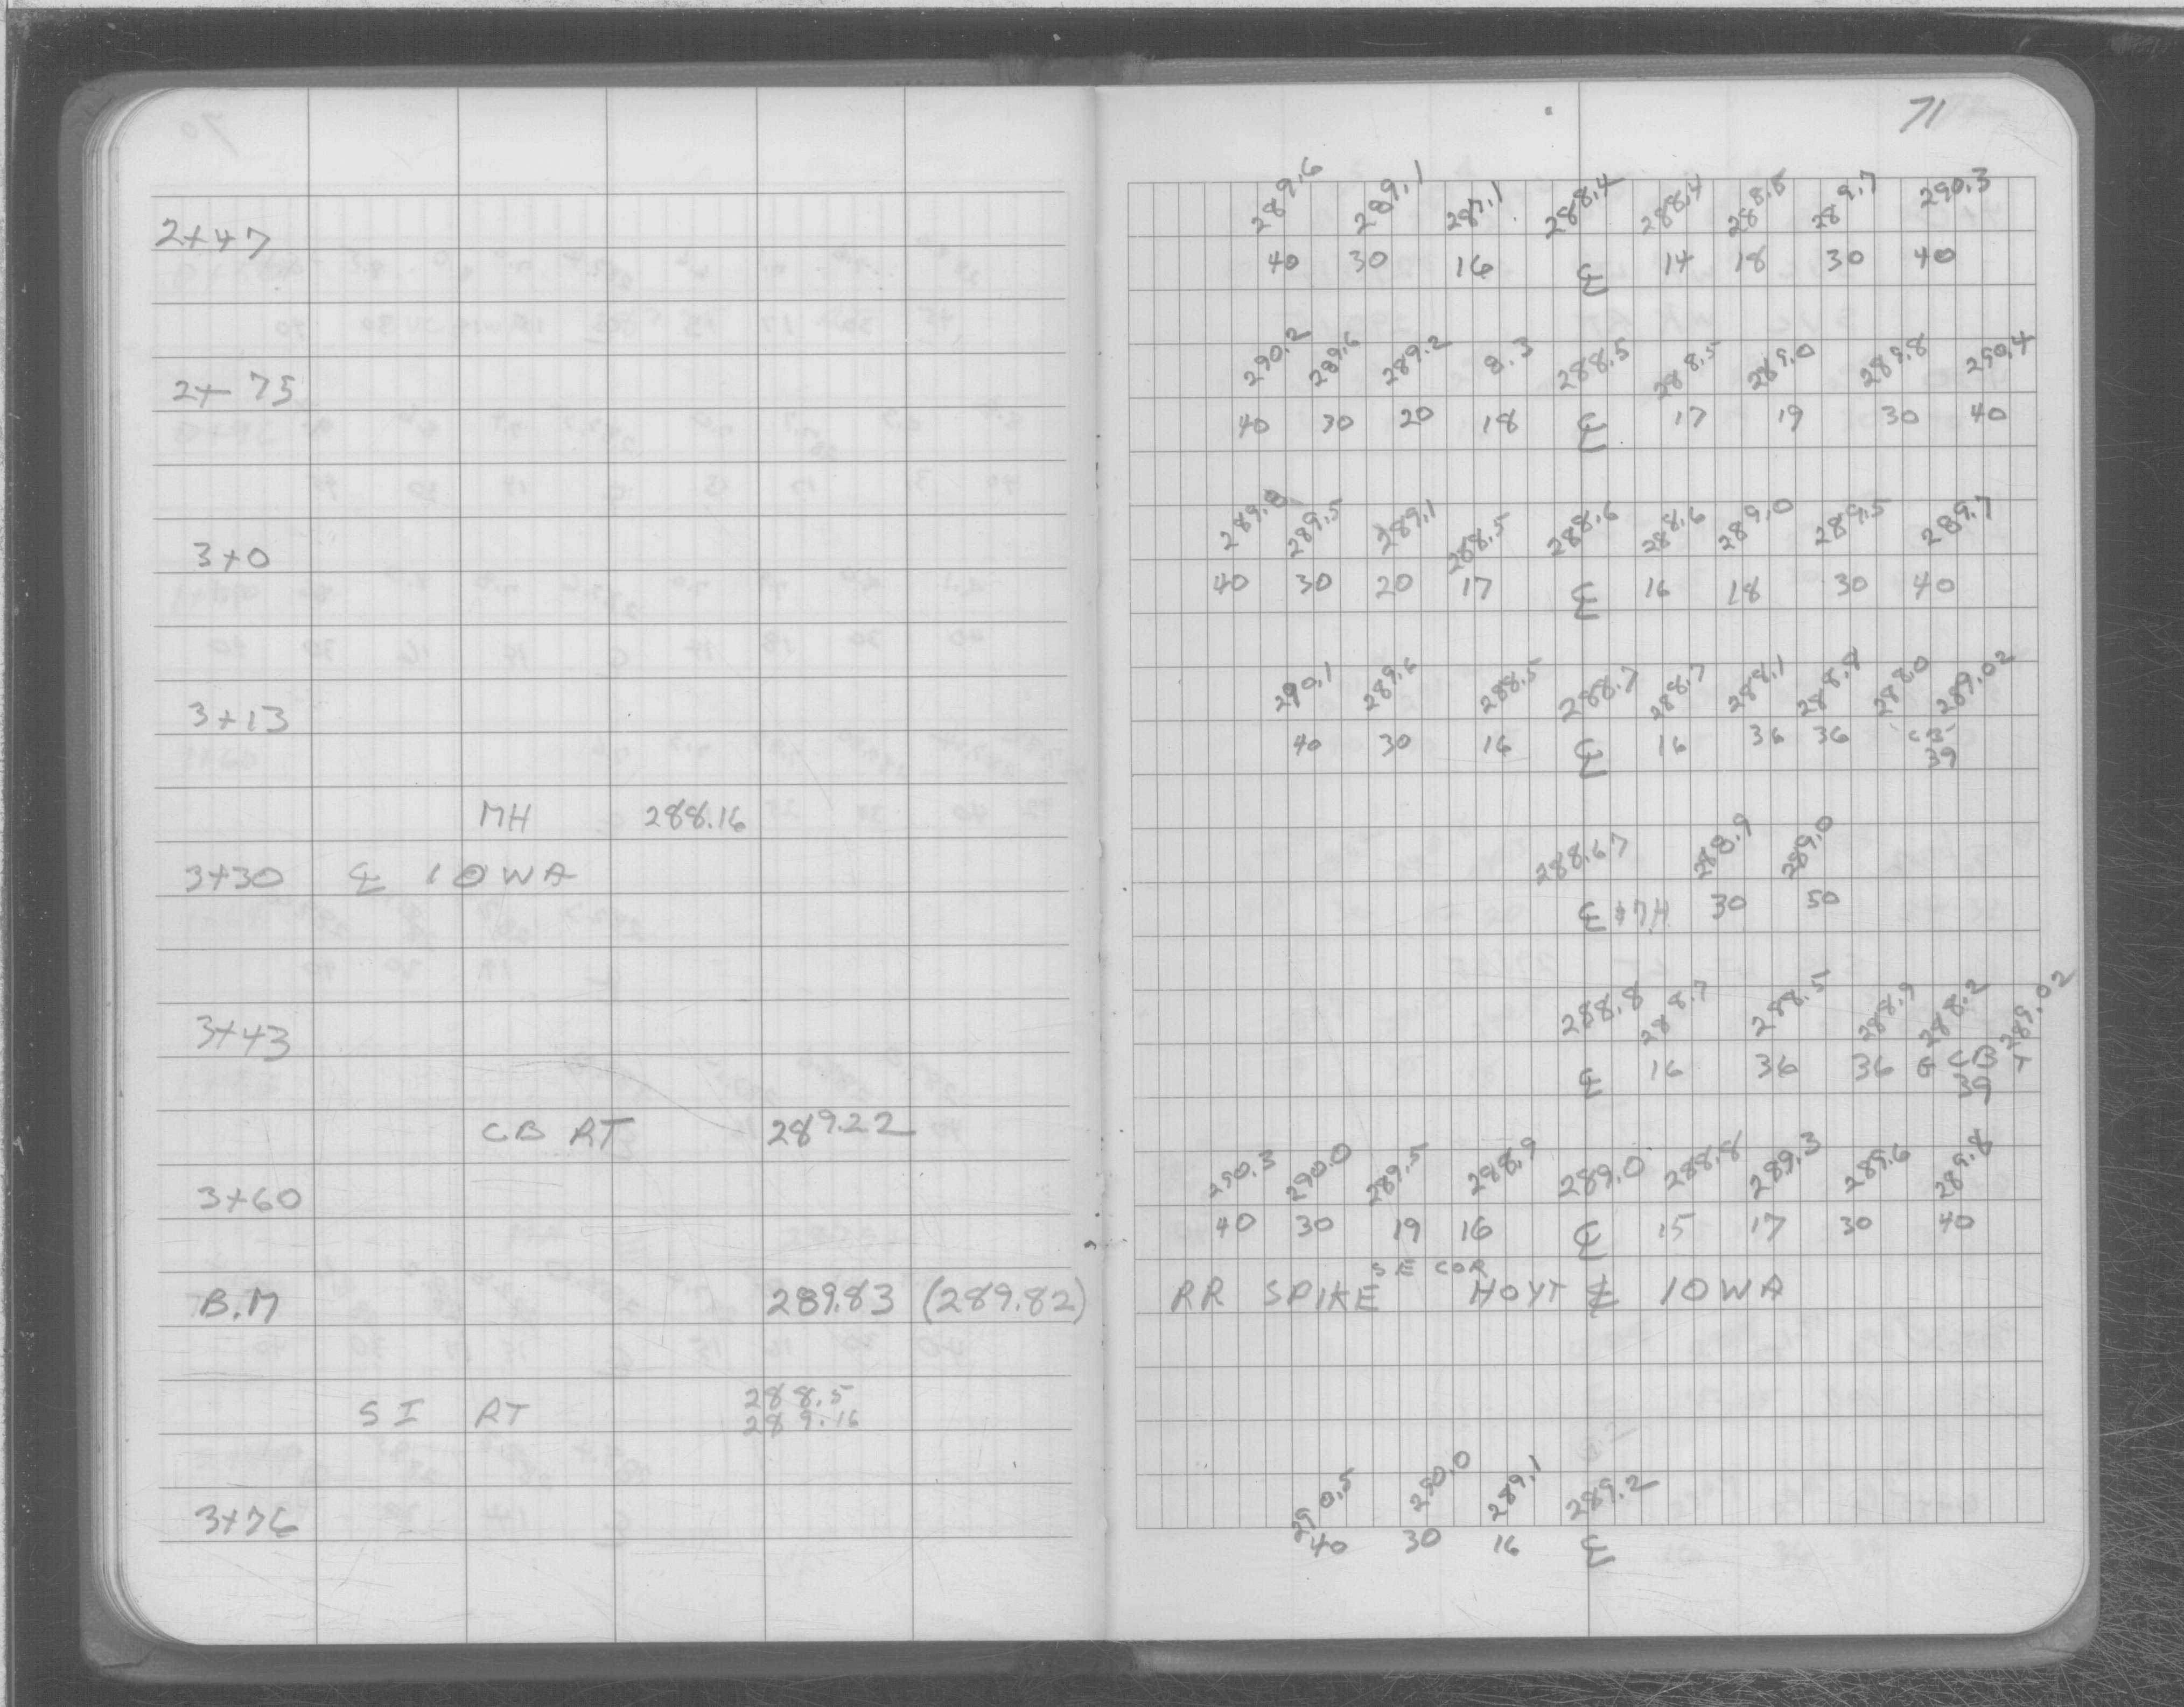 71
289.6 289.1 287.1 288.4 288.4 288.8 289.7 290.3
2+47
40 30 16 ℄ 14 18 30 40
290.2 289.6 289.2 8.3 288.5 288.5 289.0 289.8 290.4
2+75
40 30 20 18 ℄ 17 19 30 40
289.5 289.1 288.5 288.6 288.6 289.0 289.5 289.7
3+0
40 30 20 17 ℄ 16 18 30 40
290.1 289.6 288.5 288.7 288.7 288.1 288.0 289.02
3+13
40 30 16 ℄ 16 36 36 CB
39
MH 288.16
288.67 288.9 289.0
3+30 ℄ IOWA
℄ MH 30 50
288.8 288.7 288.5 288.9 288.2 289.02
3+43
℄ 16 36 36 G CB T
39
CB RT 289.22
290.3 290.0 289.5 288.9 289.0 288.8 289.3 289.6 289.8
3+60
40 30 19 16 ℄ 15 17 30 40
SE COR
B.M 289.83 (289.82) RR SPIKE HOYT & IOWA
288.5
SI RT
289.16
290.5 290.0 289.1 289.2
3+76
40 30 16 ℄